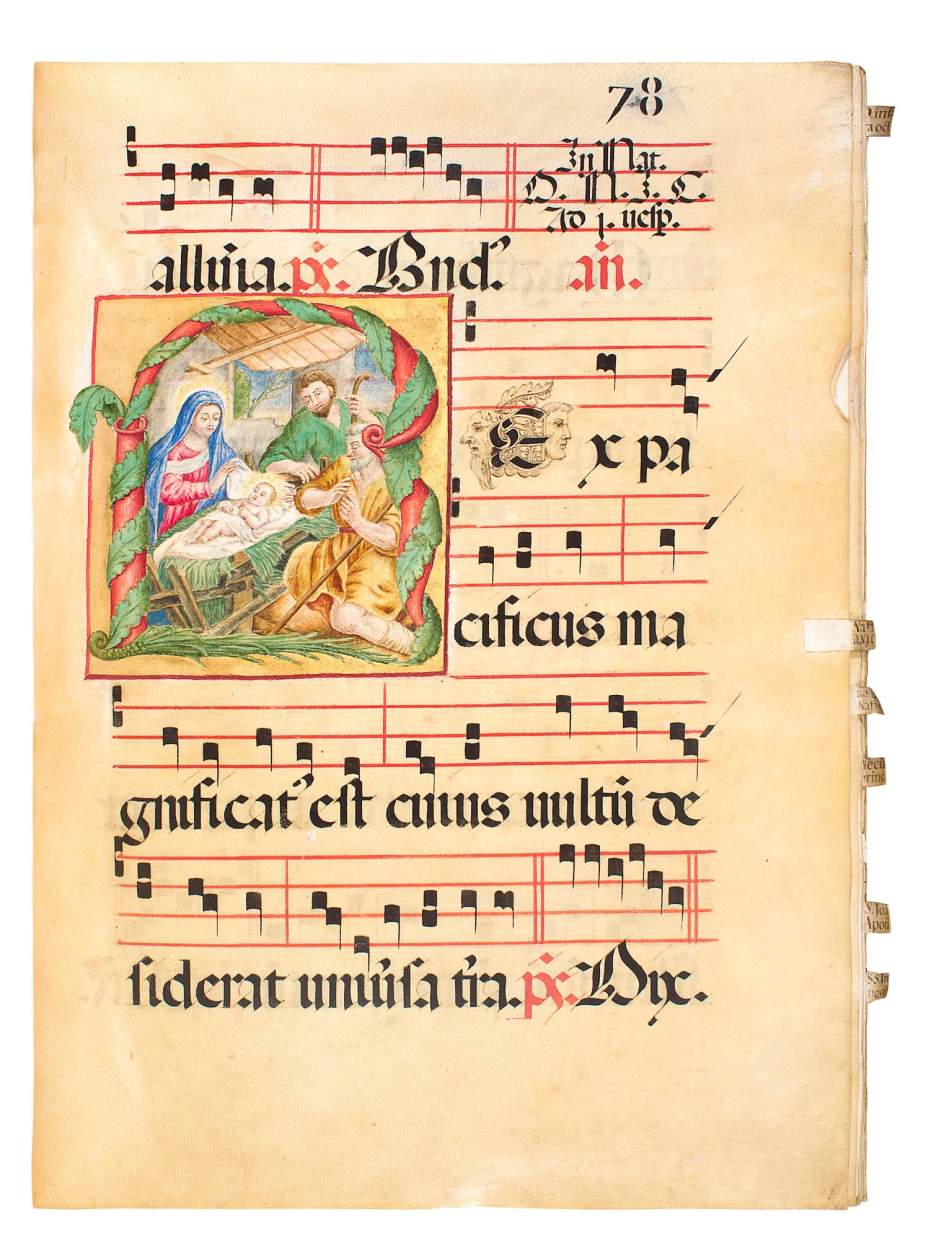 78
In Nat.
D. N. J. C.
Ad j. uesp.
alluia. ps. Bnd' an.
REx pa
cificus ma
gnificat' est cuius uultū de
siderat uniu'sa t'ra. ps. Dix.